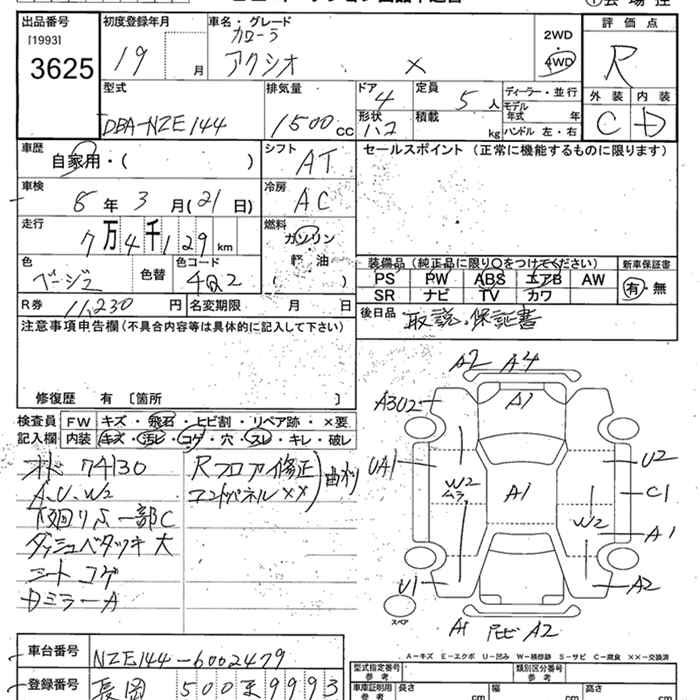 出品番号
[1993]
3625
初度登録年月
19 月
車名・グレード
カローラ
アクシオ ×
2WD
4WD
評価点
R
外装 内装
C D
型式
DBA-NZE144
排気量
1500cc
ドア
4
定員
5人
形状
ハコ
積載
kg
ディーラー・並行
モデル
年式 年
ハンドル 左・右
車歴
自家用・( )
シフト
AT
セールスポイント (正常に機能するものに限ります)
車検
8年3月(21日)
冷房
AC
走行
7万4千129km
燃料
ガソリン
軽油
( )
色
ベージュ
色替
色コード
4Q2
装備品(純正品に限り○をつけてください)
PS PW ABS エアB AW
SR ナビ TV カワ
新車保証書
有・無
R券 11,230円
名変期限 月 日
後日品
取説・保証書
注意事項申告欄(不具合内容等は具体的に記入して下さい)
修復歴 有 〔箇所 〕
検査員 FW キズ・飛石・ヒビ割・リペア跡・×要
記入欄 内装 キズ・汚レ・コゲ・穴・スレ・キレ・破レ
オド 74130
A.U.W2
下回りS一部C
ダッシュベタツキ大
シートコゲ
DミラーA
Rフロア修正
エンドパネル××
曲り
A2 A4
A1
A3U2
UA1
W2
ムラ
A1
U2
C1
W2
A1
U1
A2
スペア
A1
A2
A-キズ E-エクボ U-凹み W-補修跡 S-サビ C-腐食 ××-交換済
車台番号
NZE144-6002479
登録番号
長岡 500 9993
型式指定番号
参考
類別区分番号
参考
車庫証明用
参考
長さ cm
幅 cm
高さ cm